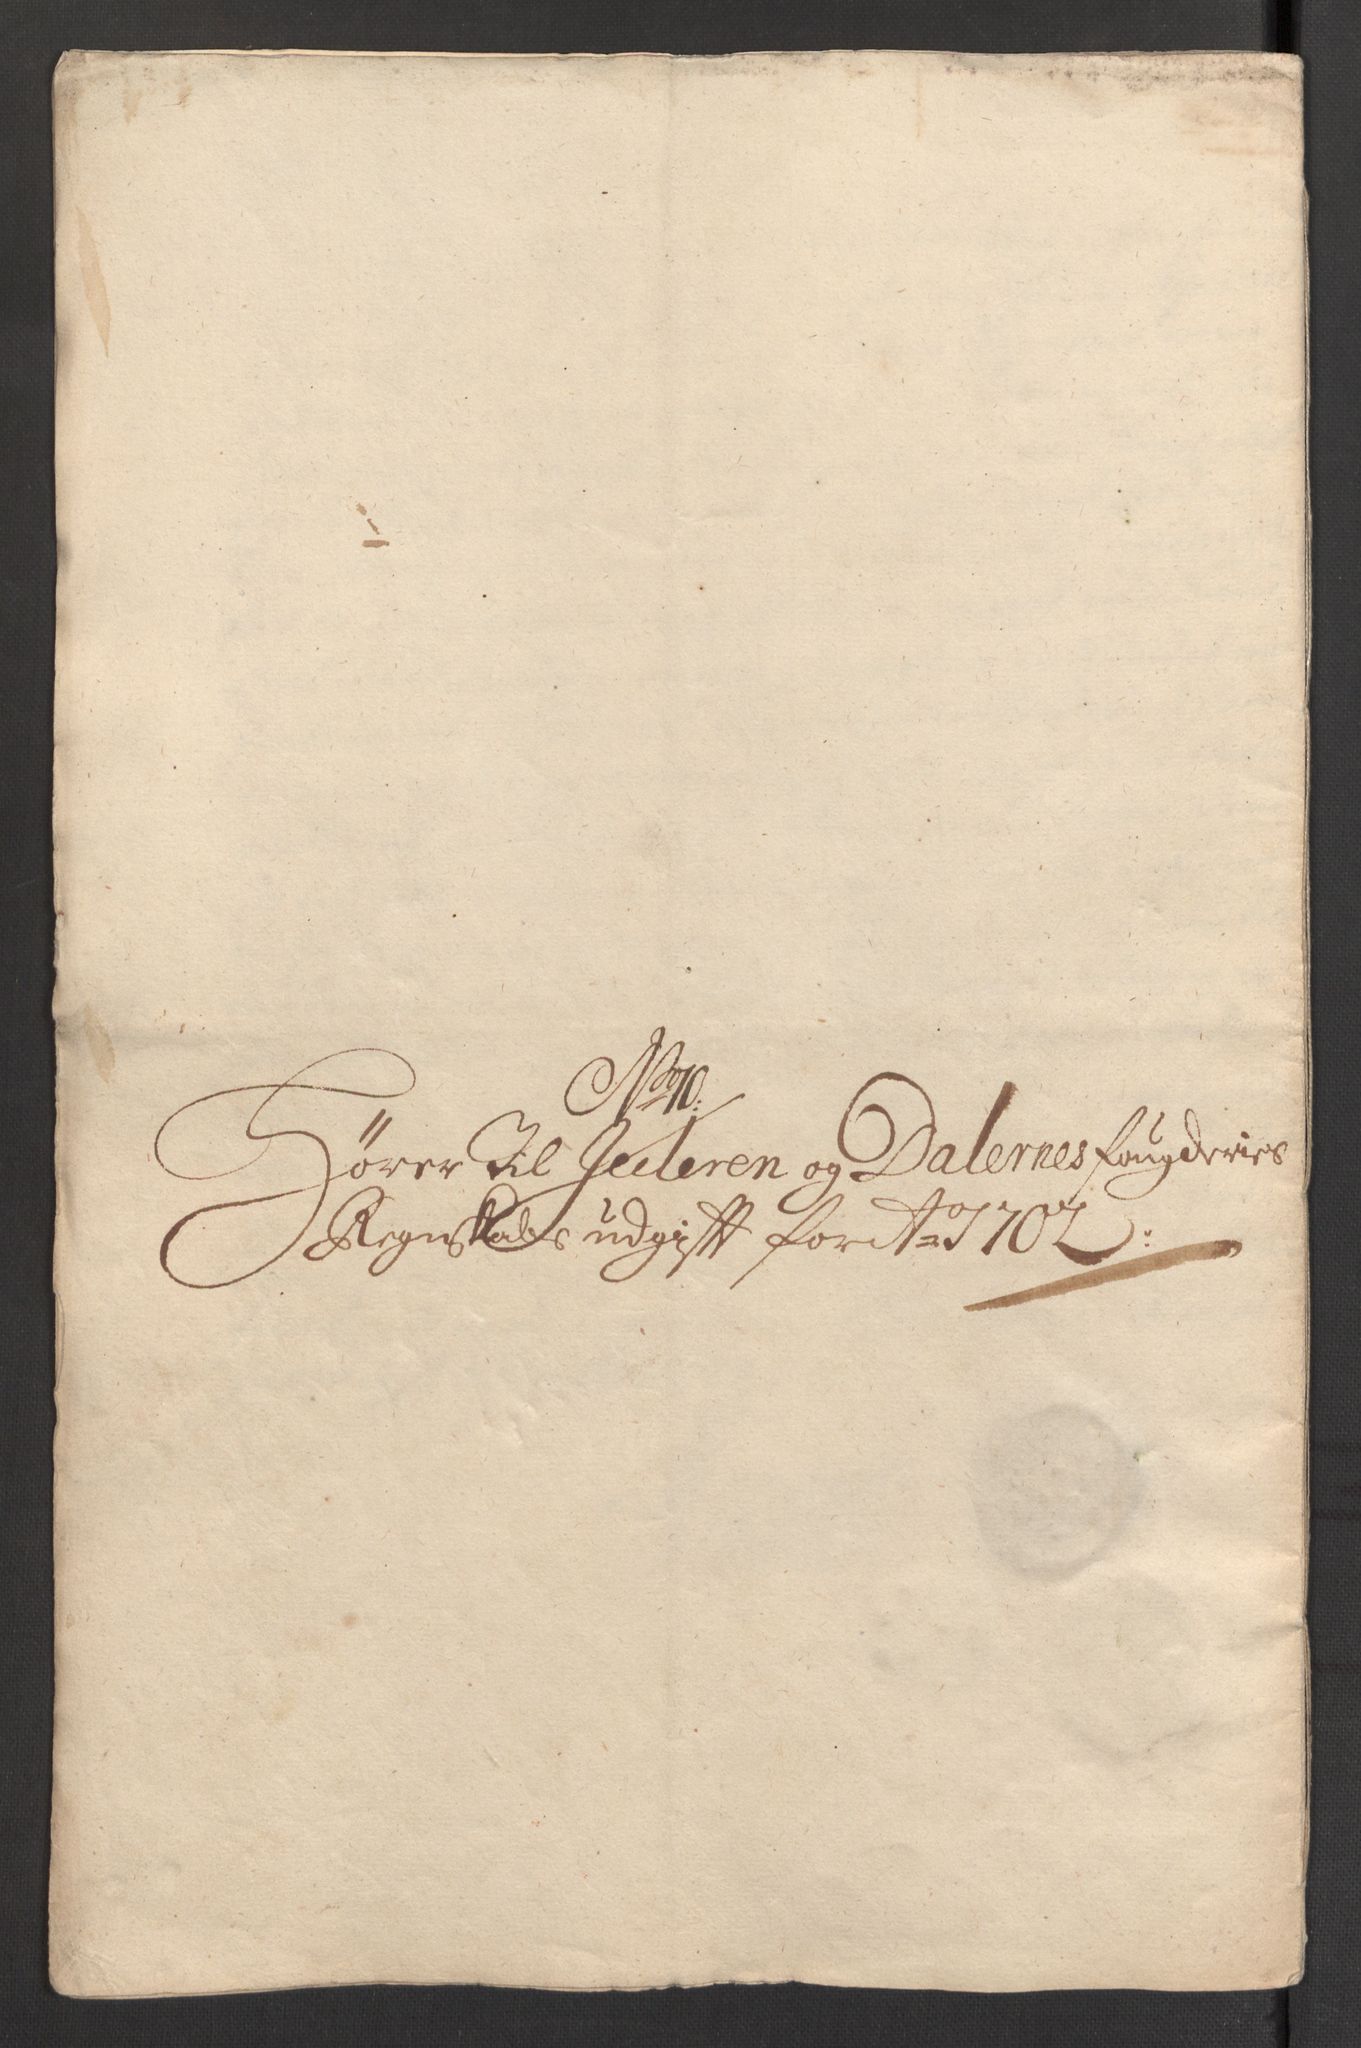 No 10:
Hörer Til Jederen og Dalernes fougderies
Regnskabs udgifft for Ao 1702: